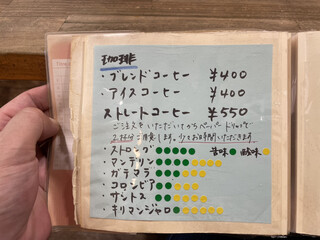 珈琲
・ブレンドコーヒー ¥400
・アイスコーヒー ¥400
ストレートコーヒー ¥550
ご注文をいただいてからペーパードリップで
2杯分ご用意します。少々お時間いただきます。
・ストロング 苦味 酸味
・マンデリン
・ガテマラ
・コロンビア
・サントス
・キリマンジャロ